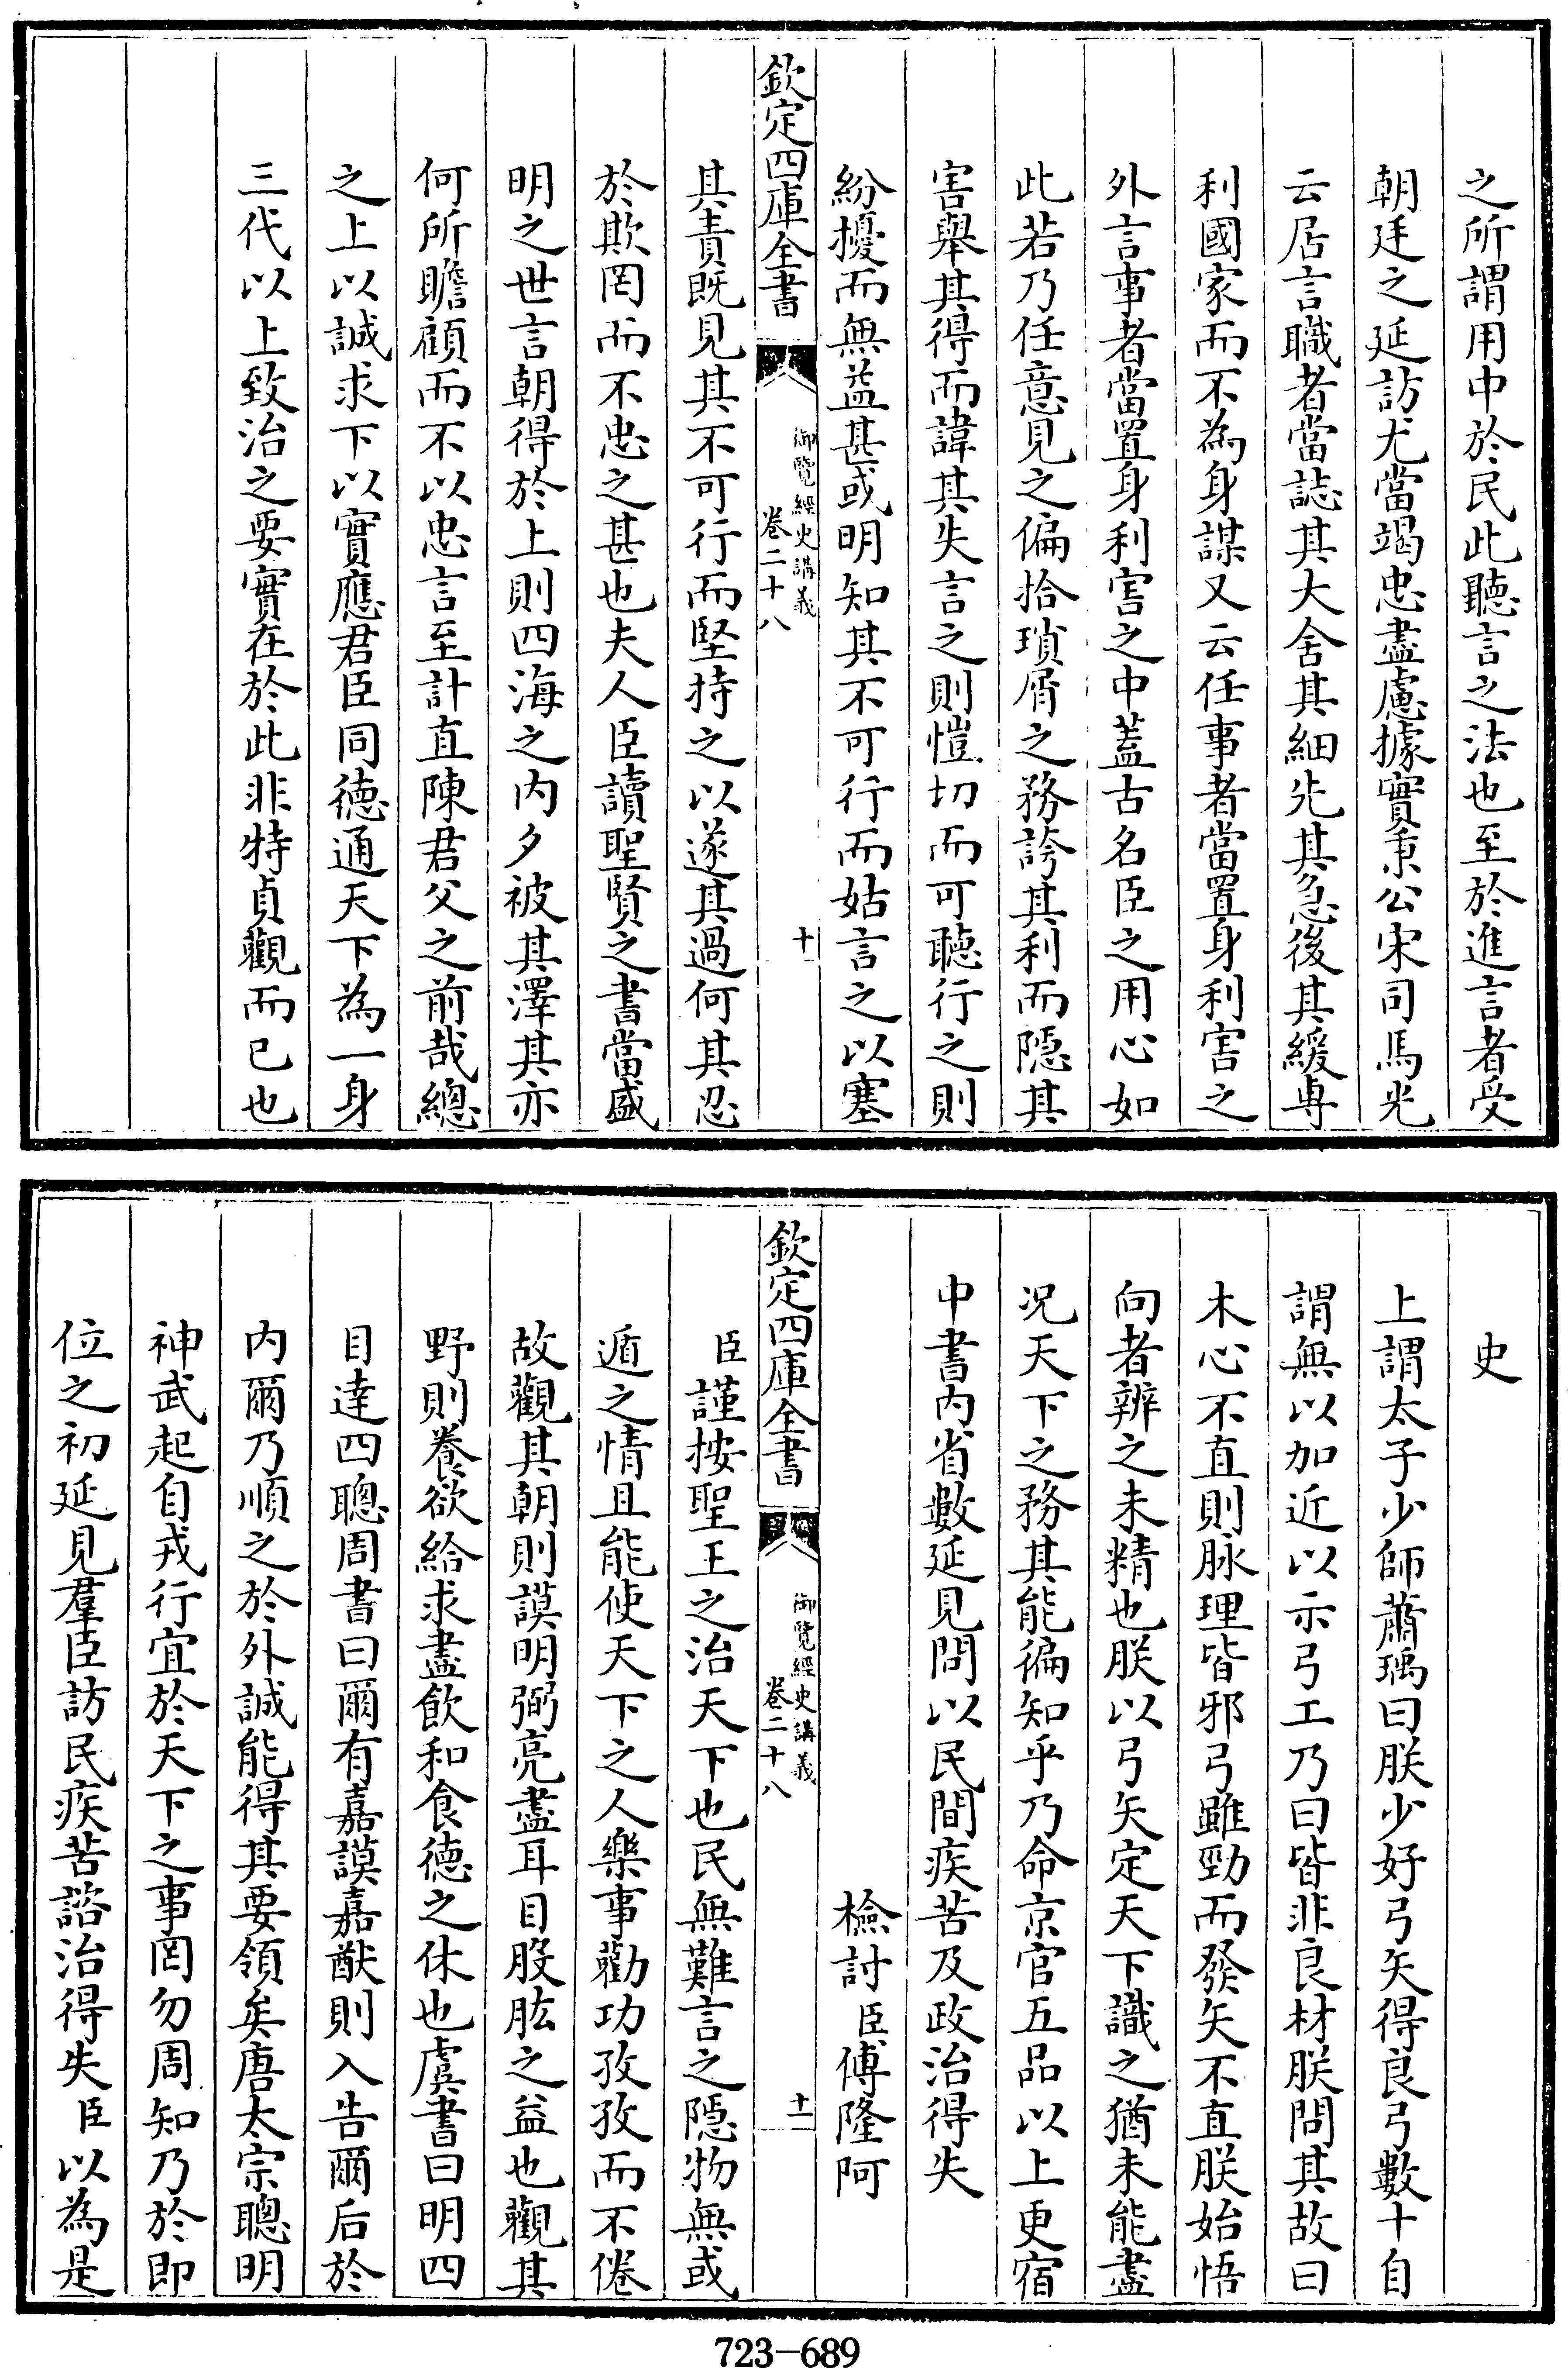 之所謂用中於民此聽言之法也至於進言者受
朝廷之延訪尤當竭忠盡慮據實秉公宋司馬光
云居言職者當誌其大舍其細先其急後其緩專
利國家而不為身謀又云任事者當置身利害之
外言事者當置身利害之中蓋古名臣之用心如
此若乃任意見之偏拾瑣屑之務誇其利而隱其
害舉其得而諱其失言之則愷切而可聽行之則
紛擾而無益甚或明知其不可行而姑言之以塞
欽定四庫全書
御覽經史講義
卷二十八
十
其責既見其不可行而堅持之以遂其過何其忍
於欺罔而不忠之甚也夫人臣讀聖賢之書當盛
明之世言朝得於上則四海之內夕被其澤其亦
何所瞻顧而不以忠言至計直陳君父之前哉總
之上以誠求下以實應君臣同德通天下為一身
三代以上致治之要實在於此非特貞觀而已也
史
上謂太子少師蕭瑀曰朕少好弓矢得良弓數十自
謂無以加近以示弓工乃曰皆非良材朕問其故曰
木心不直則脉理皆邪弓雖勁而發矢不直朕始悟
向者辨之未精也朕以弓矢定天下識之猶未能盡
况天下之務其能徧知乎乃命京官五品以上更宿
中書內省數延見問以民間疾苦及政治得失
檢討臣傅隆阿
欽定四庫全書
御覽經史講義
卷二十八
十一
臣謹按聖王之治天下也民無難言之隱物無或
遁之情且能使天下之人樂事勸功孜孜而不倦
故觀其朝則謨明弼亮盡耳目股肱之益也觀其
野則養欲給求盡飲和食德之休也虞書曰明四
目達四聰周書曰爾有嘉謨嘉猷則入告爾后於
內爾乃順之於外誠能得其要領矣唐太宗聰明
神武起自戎行宜於天下之事罔勿周知乃於即
位之初延見羣臣訪民疾苦諮治得失臣以為是
723-689